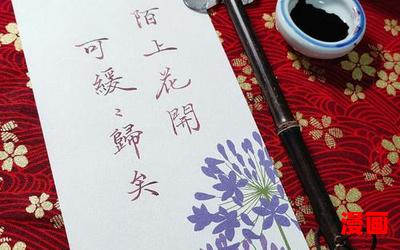 陌上花開
可緩〻歸矣
漫画